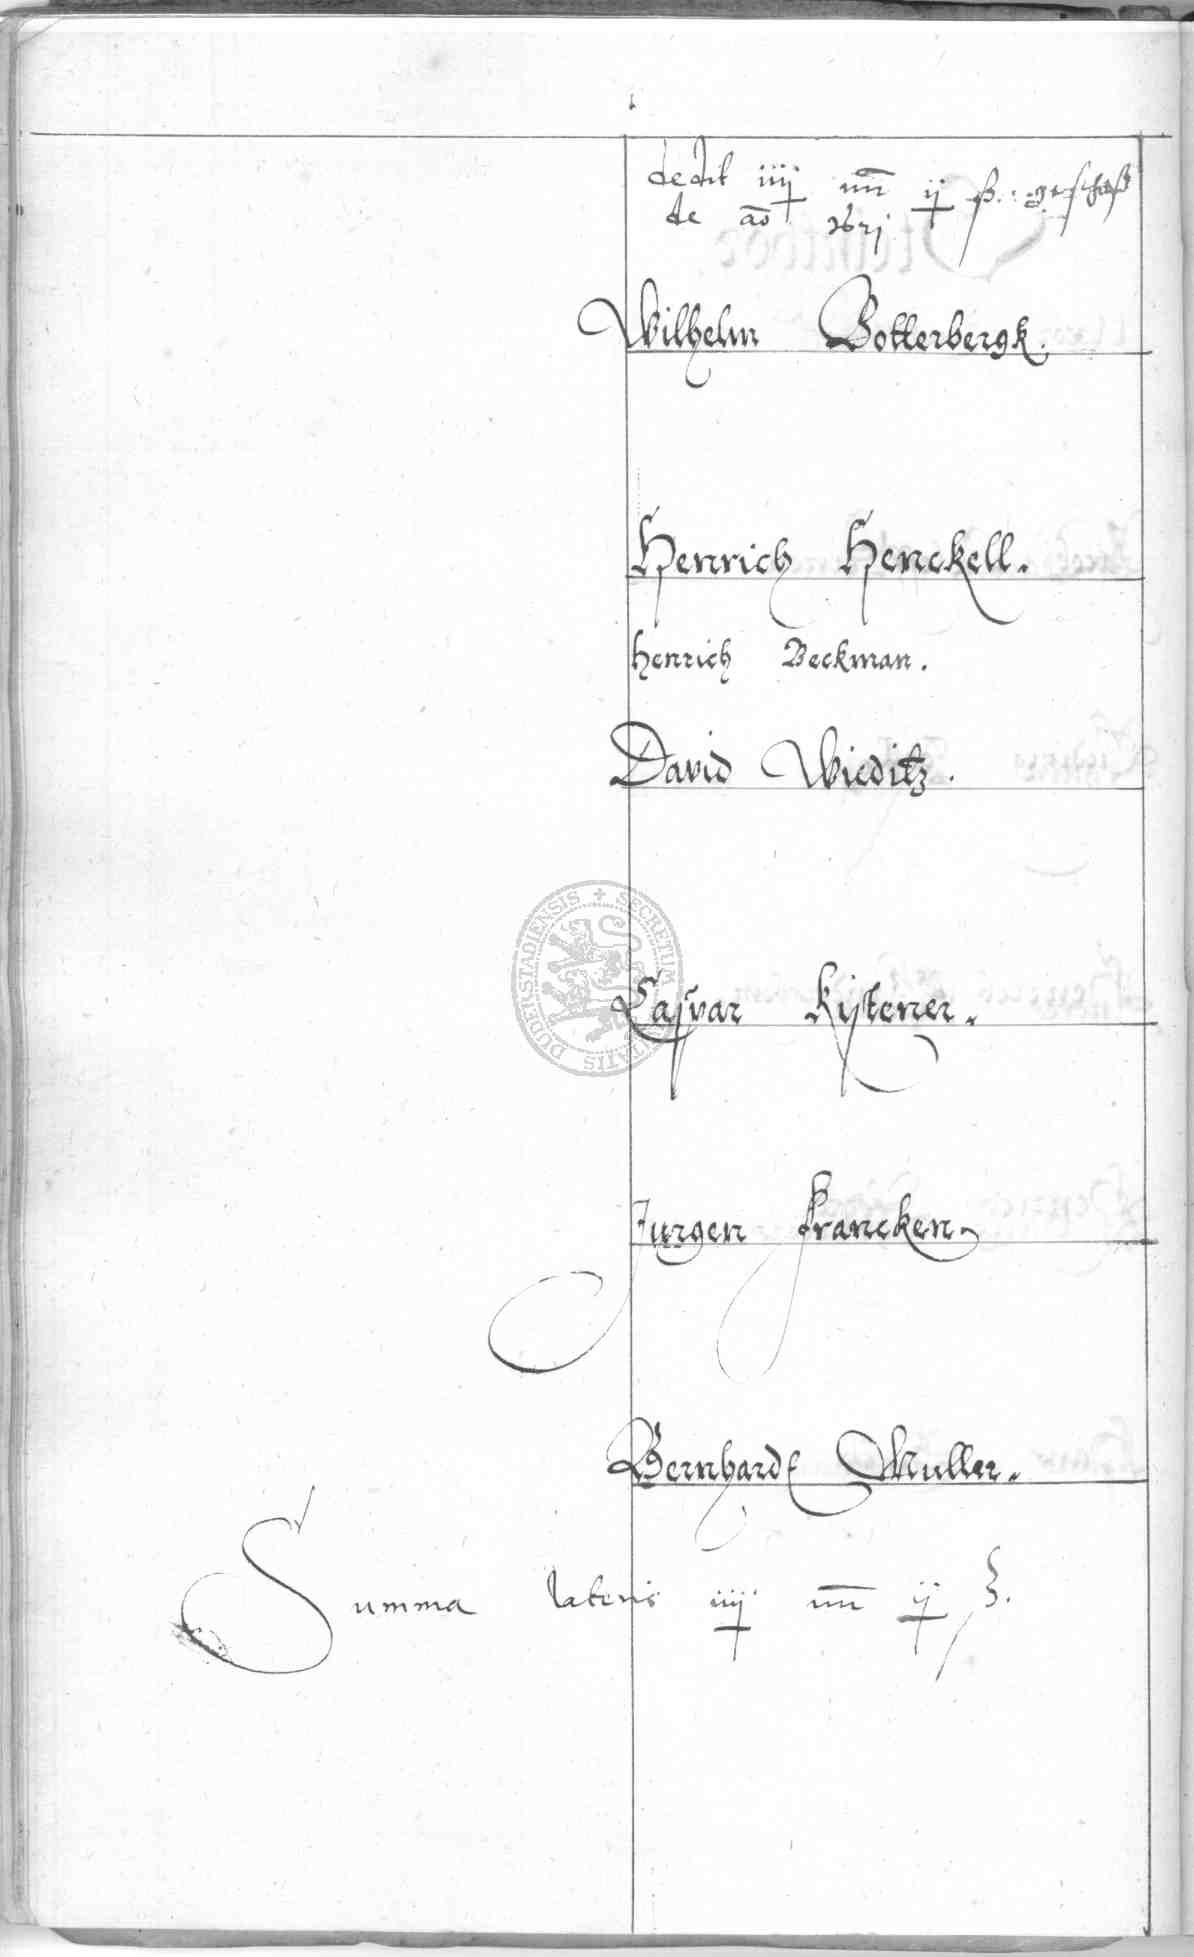 dedit iiij mr ij ß. geschoß
de ao 1621
Wilhelm Botterbergk.
Henrich Henckell.
Henrich Beckman.
David Wieditz.
SECRETUM CIVITATIS DUDERSTADIENSIS
Caspar Kistener.
Jurgen Francken
Bernhardt Muller.
Summa lateris iiij mr ij ß.